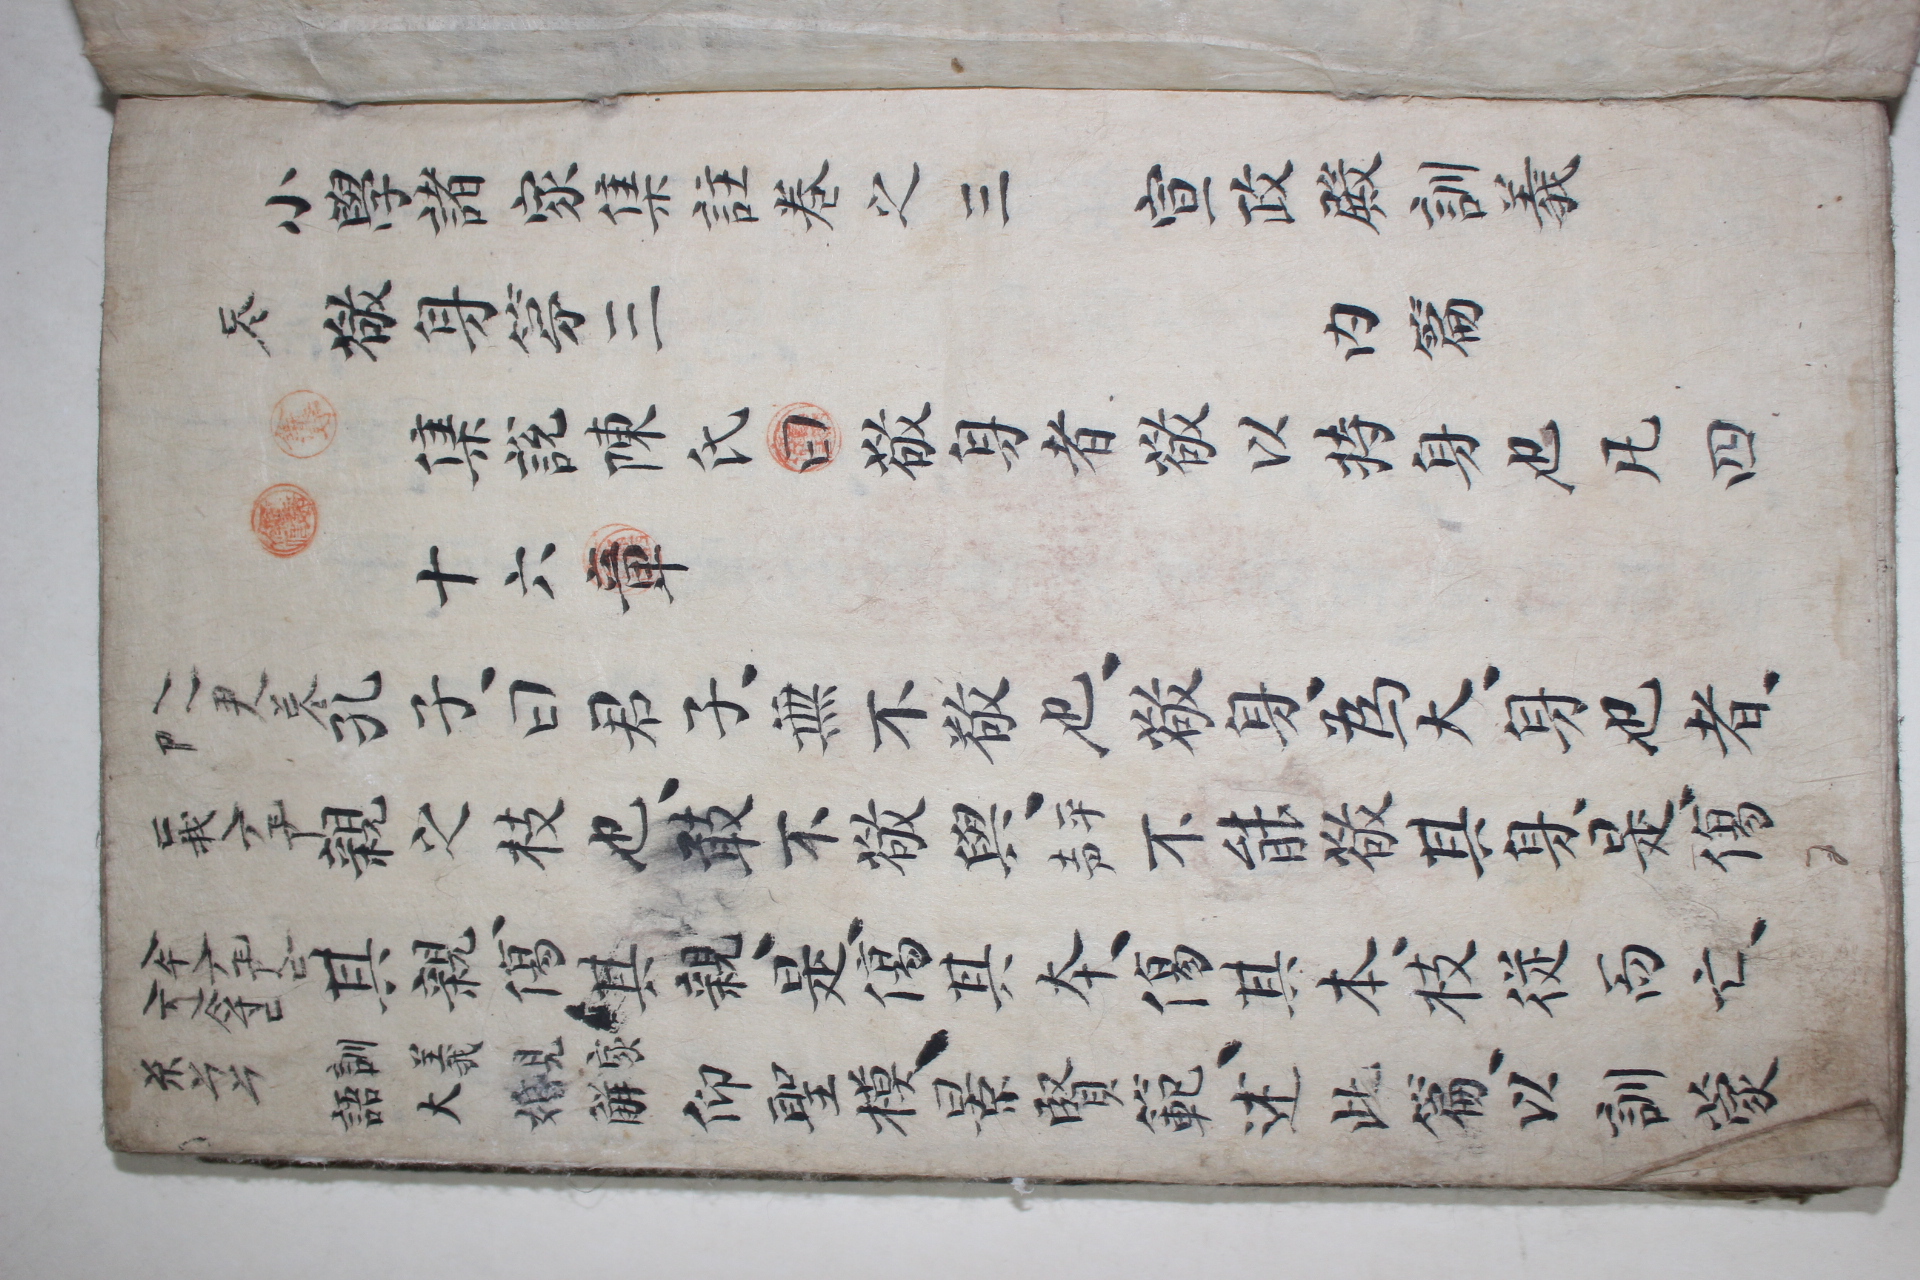 小學諸家集註卷之三 宣政殿訓義
敬身第三 內篇
集說陳氏曰敬身者敬以持身也凡四
十六章
孔子、曰君子、無不敬也、敬身、為大、身也者、
親之枝也、敢不敬與、平声不能敬其身、是、傷
其親、傷其親、是、傷其本、傷其本、枝從而亡、
訓義見家語大婚解仰聖模、景賢範、述此篇、以訓蒙